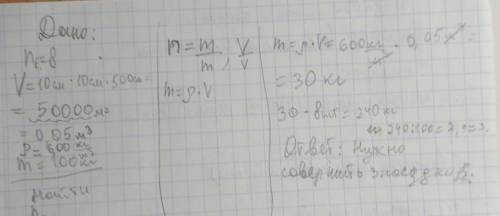 Дано:
n₁=8
V=10см·10см·500см
= 50000м³
= 0,05м³
ρ=600 кг/м³
m=100кг
Найти
n = m/m, V/V
m=ρ·V
m=ρ·V=600кг/м³·0,05м³=
=30 кг
30·8шт=240кг
240:100=2,4≈3
Ответ: Нужно
совершить 3 поездки